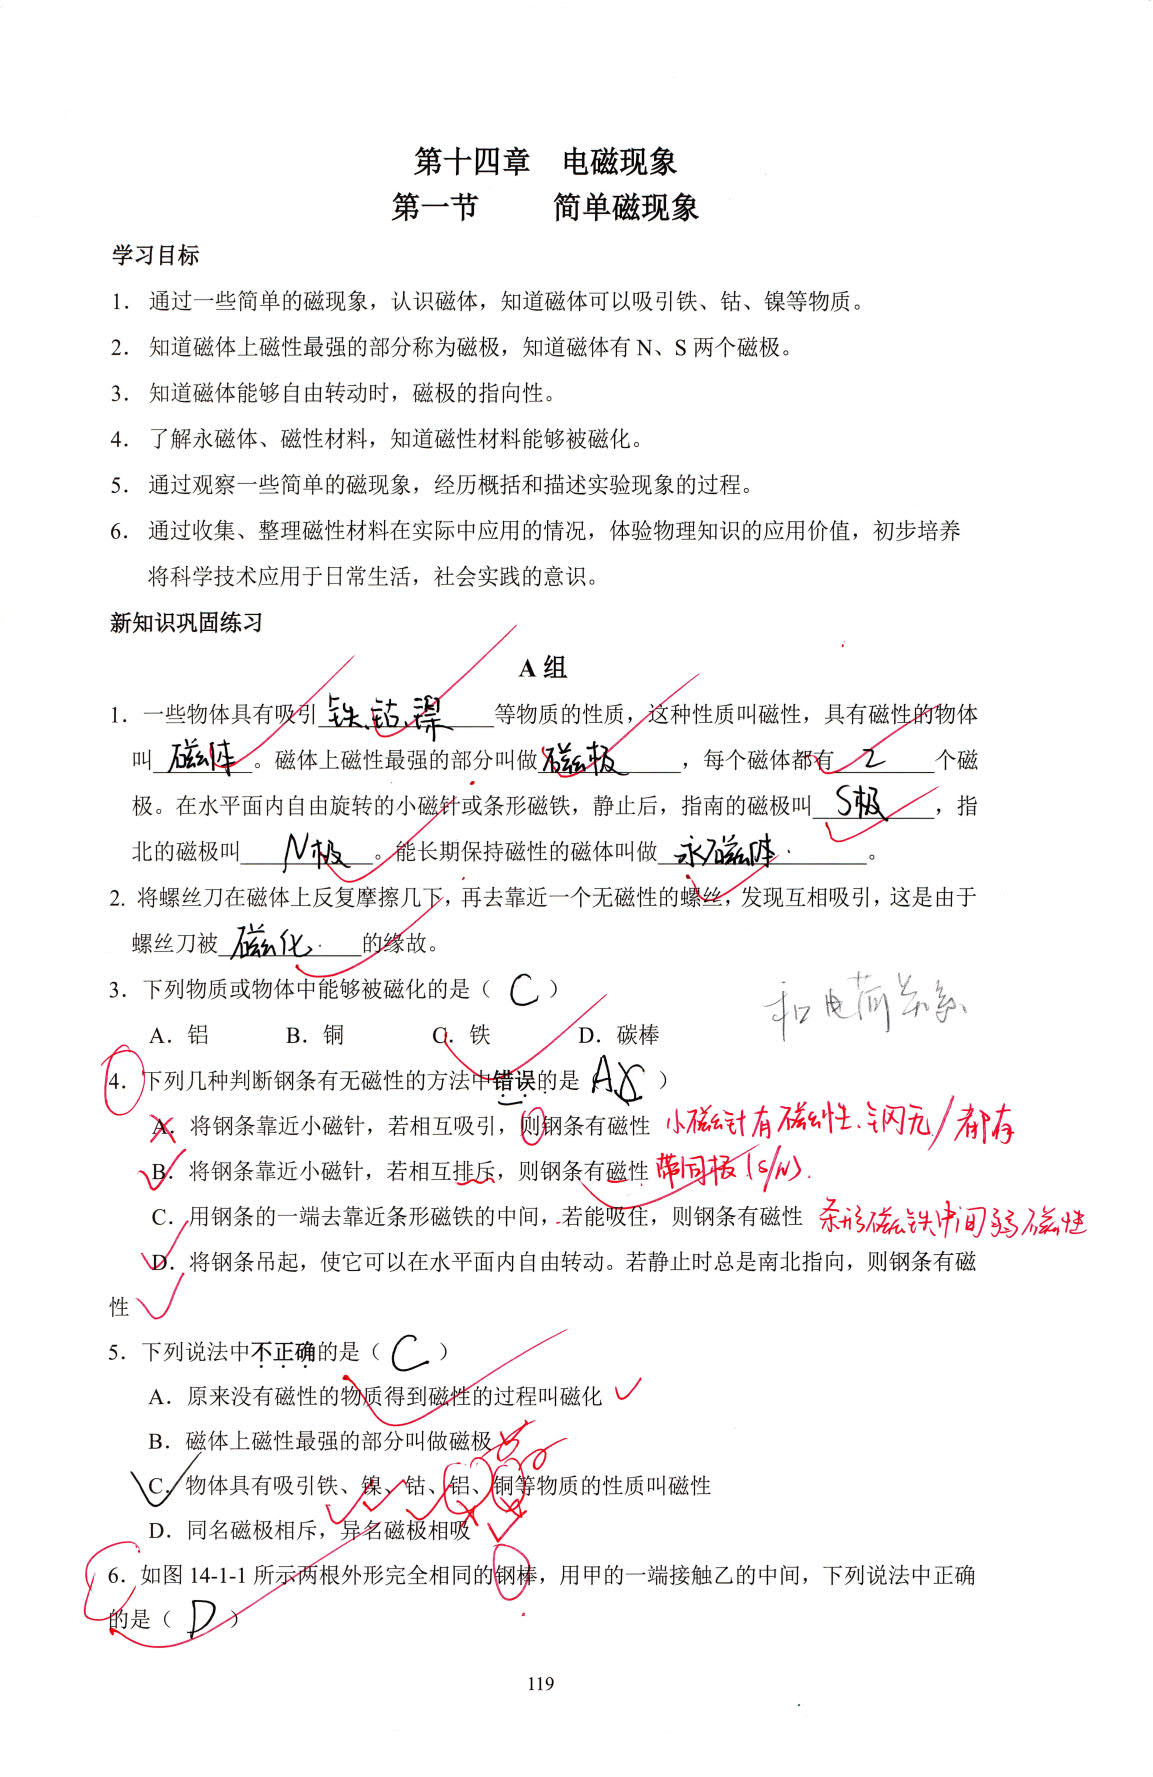 第十四章 电磁现象
第一节 简单磁现象
学习目标
1. 通过一些简单的磁现象，认识磁体，知道磁体可以吸引铁、钴、镍等物质。
2. 知道磁体上磁性最强的部分称为磁极，知道磁体有 N、S 两个磁极。
3. 知道磁体能够自由转动时，磁极的指向性。
4. 了解永磁体、磁性材料，知道磁性材料能够被磁化。
5. 通过观察一些简单的磁现象，经历概括和描述实验现象的过程。
6. 通过收集、整理磁性材料在实际中应用的情况，体验物理知识的应用价值，初步培养
将科学技术应用于日常生活，社会实践的意识。
新知识巩固练习
A 组
1. 一些物体具有吸引 铁、钴、镍 等物质的性质，这种性质叫磁性，具有磁性的物体
叫 磁体 。磁体上磁性最强的部分叫做 磁极 ，每个磁体都有 2 个磁
极。在水平面内自由旋转的小磁针或条形磁铁，静止后，指南的磁极叫 S极 ，指
北的磁极叫 N极 。能长期保持磁性的磁体叫做 永磁体 。
2. 将螺丝刀在磁体上反复摩擦几下，再去靠近一个无磁性的螺丝，发现互相吸引，这是由于
螺丝刀被 磁化 的缘故。
3. 下列物质或物体中能够被磁化的是（ C ）
和电荷关系
A. 铝 B. 铜 C. 铁 D. 碳棒
4. 下列几种判断钢条有无磁性的方法中错误的是（ A ）
A. 将钢条靠近小磁针，若相互吸引，则钢条有磁性 小磁针有磁性、钢无/都有
B. 将钢条靠近小磁针，若相互排斥，则钢条有磁性 带同极(S/N).
C. 用钢条的一端去靠近条形磁铁的中间，若能吸住，则钢条有磁性 条形磁铁中间弱磁性
D. 将钢条吊起，使它可以在水平面内自由转动。若静止时总是南北指向，则钢条有磁
性
5. 下列说法中不正确的是（ C ）
A. 原来没有磁性的物质得到磁性的过程叫磁化
B. 磁体上磁性最强的部分叫做磁极
C. 物体具有吸引铁、镍、钴、铝、铜等物质的性质叫磁性
D. 同名磁极相斥，异名磁极相吸
6. 如图 14-1-1 所示两根外形完全相同的钢棒，用甲的一端接触乙的中间，下列说法中正确
的是（ D ）
119